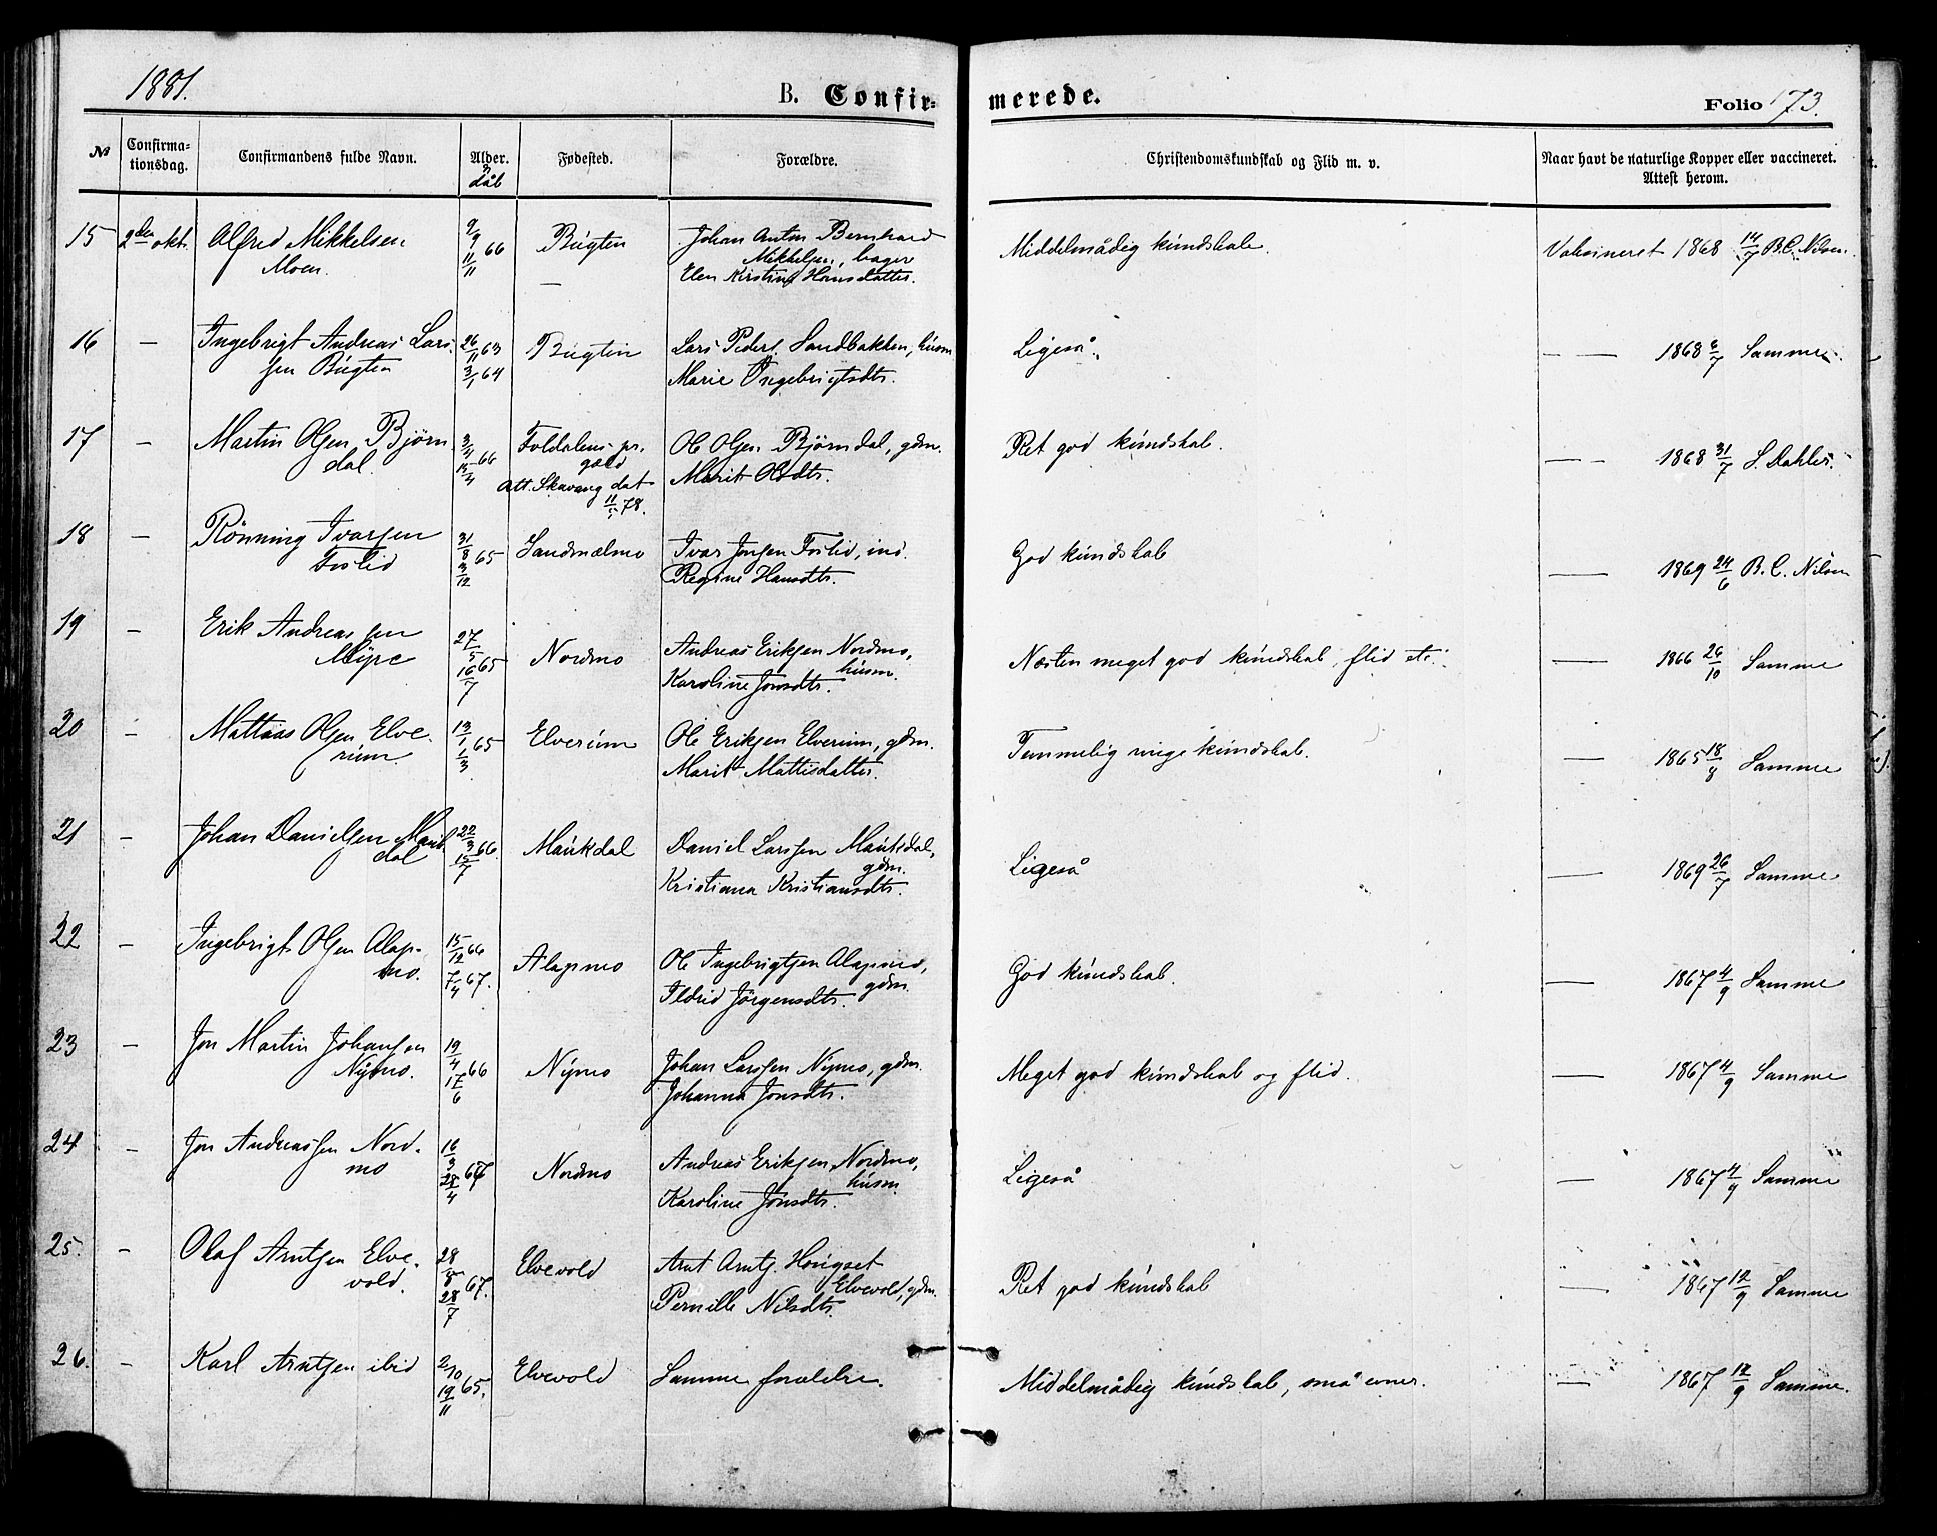 1881. B. Confir- merede. Folio 173.
№ Confirma- tionsdag. Confirmandens fulde Navn. Alder. & dåb Fødested. Forældre. Christendomskundskab og Flid m. v. Naar havt de naturlige Kopper eller vaccineret. Attest herom.
15 2den okt. Alfred Mikkelsen 9/9 66 Bugten Johan Anton Bernhard Middelmådig kundskab. Vaksineret 1868 14/7 B.C. Nilsen.
Moen. 11/11 — Mikkelsen, bager
Elen Kirstine Hansdatter.
16 — Ingebrigt Andreas Lars- 26/11 63 Bugten Lars Peders. Sandbakken, husm. Ligeså. — — 1868 6/7 Samme.
sen Bugten 3/1 64 Marie Ingebrigtsdtr.
17 — Martin Olsen Bjørn 3/4 66 Foldalens pr. Ole Olsen Bjørndal, gdm. Ret god kundskab. — — 1868 31/7 S. Dahler.
dal. 15/4 gæld Marit Olsdtr.
Att. Skavang dat.
18 — Rönning Ivarsen 31/8 65 Sandnælmo Ivar Jonsen Foslid, ind. God kundskab — 1869 24/6 B. C. Nilsen
Foslid 3/12 Regine Hansdtr.
19 — Erik Andreassen 27/5 65 Nordmo Andreas Eriksen Nordmo, Næsten meget god kundskab, flid etc. — 1866 26/10 Samme
Myre 16/7 husm.
Karoline Jonsdtr.
20 — Mattias Olsen Elve- 13/1 65 Elverum Ole Eriksen Elverum, gdm. Temmelig ringe kundskab. — 1865 18/8 Samme
rum. 1/3 Marit Mattisdatter.
21 — Johan Danielsen Mauk 22/3 66 Maukdal Daniel Larssen Maukdal, Ligeså — 1869 26/7 Samme
dal 15/7 gdm.
Kristiana Kristiansdtr.
22 — Ingebrigt Olsen Alap- 15/12 66 Alapmo Ole Ingebrigtsen Alapmo, God kundskab. — 1867 4/9 Samme
mo. 7/4 67. gdm.
Ildrid Jörgensdtr.
23 — Jon Martin Johansen 19/4 66 Nymo Johan Larssen Nymo, gdm. Meget god kundskab og flid. — 1867 4/9 Samme
Nymo. 17/6 Johanna Jonsdtr.
24 — Jon Andreassen Nord- 16/3 67 Nordmo Andreas Eriksen Nordmo, Ligeså — 1867 4/9 Samme
mo 28/4 husm.
Karoline Jonsdtr.
25. — Olaf Arntsen Elve- 28/5 67. Elvevold Arnt Arnts. Hougset Ret god kundskab — 1867 12/9 Samme
vold. 28/7 Elvevold, gdm.
Pernille Nilsdtr.
26. — Karl Arntsen ibid 2/10 65. Elvevold Samme forældre. Middelmådig kundskab, små evner. — 1867 12/9 Samme.
19/11